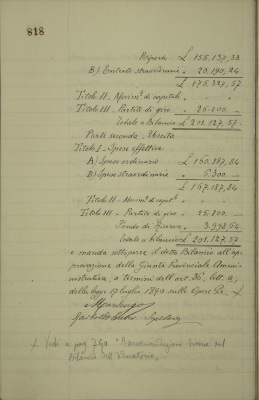 818
Riporto £ 155,137,33
B) Entrate straordinarie " 20,190,24
£ 175,327,57
Titolo II - Movim.º di capitali " "
Titolo III - Partite di giro " 25,800 -
Totale a Bilancio £ 201,127,57
Parte seconda - Uscita
Titolo I - Spese effettive
A) Spese ordinarie £ 160,887,84
B) Spese straordinarie " 6,300 -
£ 167,187,84
Titolo II - Movim.º di capit.
Titolo III - Partite di giro " 25,800 -
Fondo di Riserva " 
Totale a bilancio £ 201,127,57
e manda sottoporre il detto Bilancio all'ap-
provazione della Giunta Provinciale Ammi-
nistrativa, a termini dell'art. 36, lett. a,
della legge 17 luglio 1890 sulle Opere Pie.
Vedi a pag. 790 "Raccomandazioni